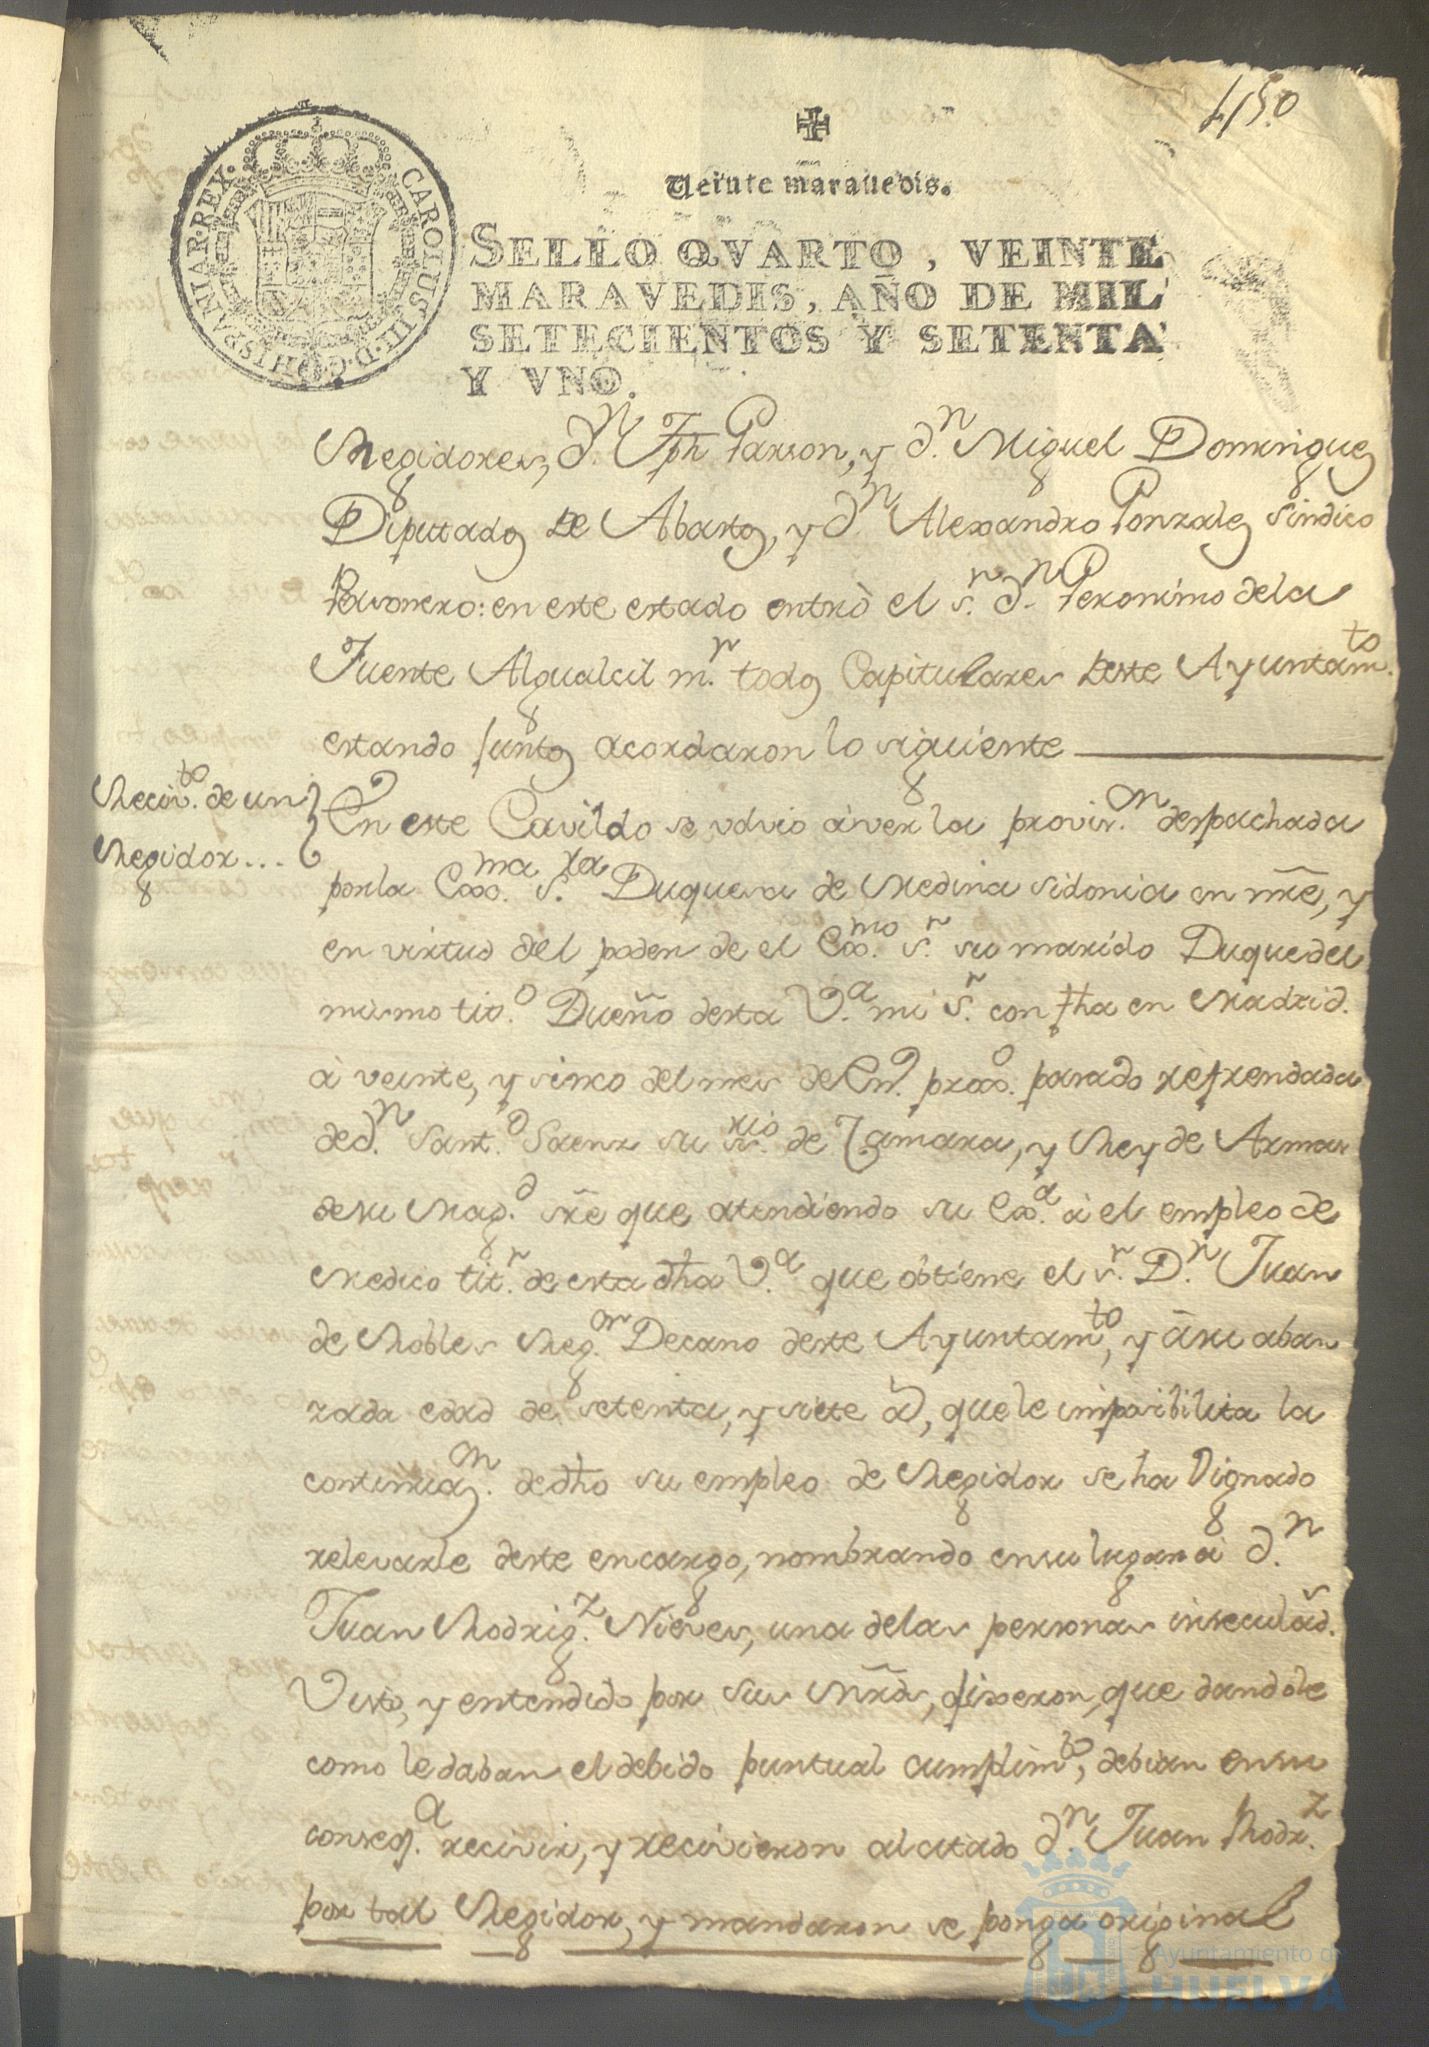 450
Veinte maravedis.
SELLO QVARTO, VEINTE
MARAVEDIS, AÑO DE MIL
SETECIENTOS Y SETENTA
Y VNO.
CAROLUS III D G HISPANIAR REX
Regidores, Dn. Jph Garzon, y Dn. Miguel Dominguez
Diputados de Abastos, y Dn Alexandro Gonzalez Sindico
Personero: en este estado entró el Sr. Dn. Geronimo de la
Fuente Alguacil mr. todos Capitulares deste Ayuntamto.
estando juntos acordaron lo siguiente
Recivto. de un
Regidor...
En este Cavildo se volvio à ver la provisn. despachada
por la Exxma. Sra. Duquesa de Medina Sidonia en nre, y
en virtud del poder de el Exmo. Sr. su marido Duque del
mismo tito. Dueño desta Va. mi Sr. con fha en Madrid.
à veinte, y sinco del mes de Eno. proxo. pasado refrendada
de Dn. Santo. Saenz su srio. de Camara, y Rey de Armas
de su Magd. sre que atendiendo su Exa. à el empleo de
Medico titr. de esta dha Va. que obtiene el Sr. Dn. Juan
de Robles Regor. Decano deste Ayuntamto, y à su aban
zada edad de setenta, y siete as, que le imposibilita la
continuazn. de dho su empleo de Regidor se ha Dignado
relevarle deste encargo, nombrando en su lugar à Dn.
Juan Rodrigz. Nieves, una de las personas inseculads.
Visto, y entendido por sus mrds, dixeron, que dandole
como le daban el debido puntual cumplimto, debian en su
conseqa. recivir, y recivieron al citado Dn. Juan Rodrz.
por tal Regidor, y mandaron se ponga original
Ayuntamiento de
HUELVA